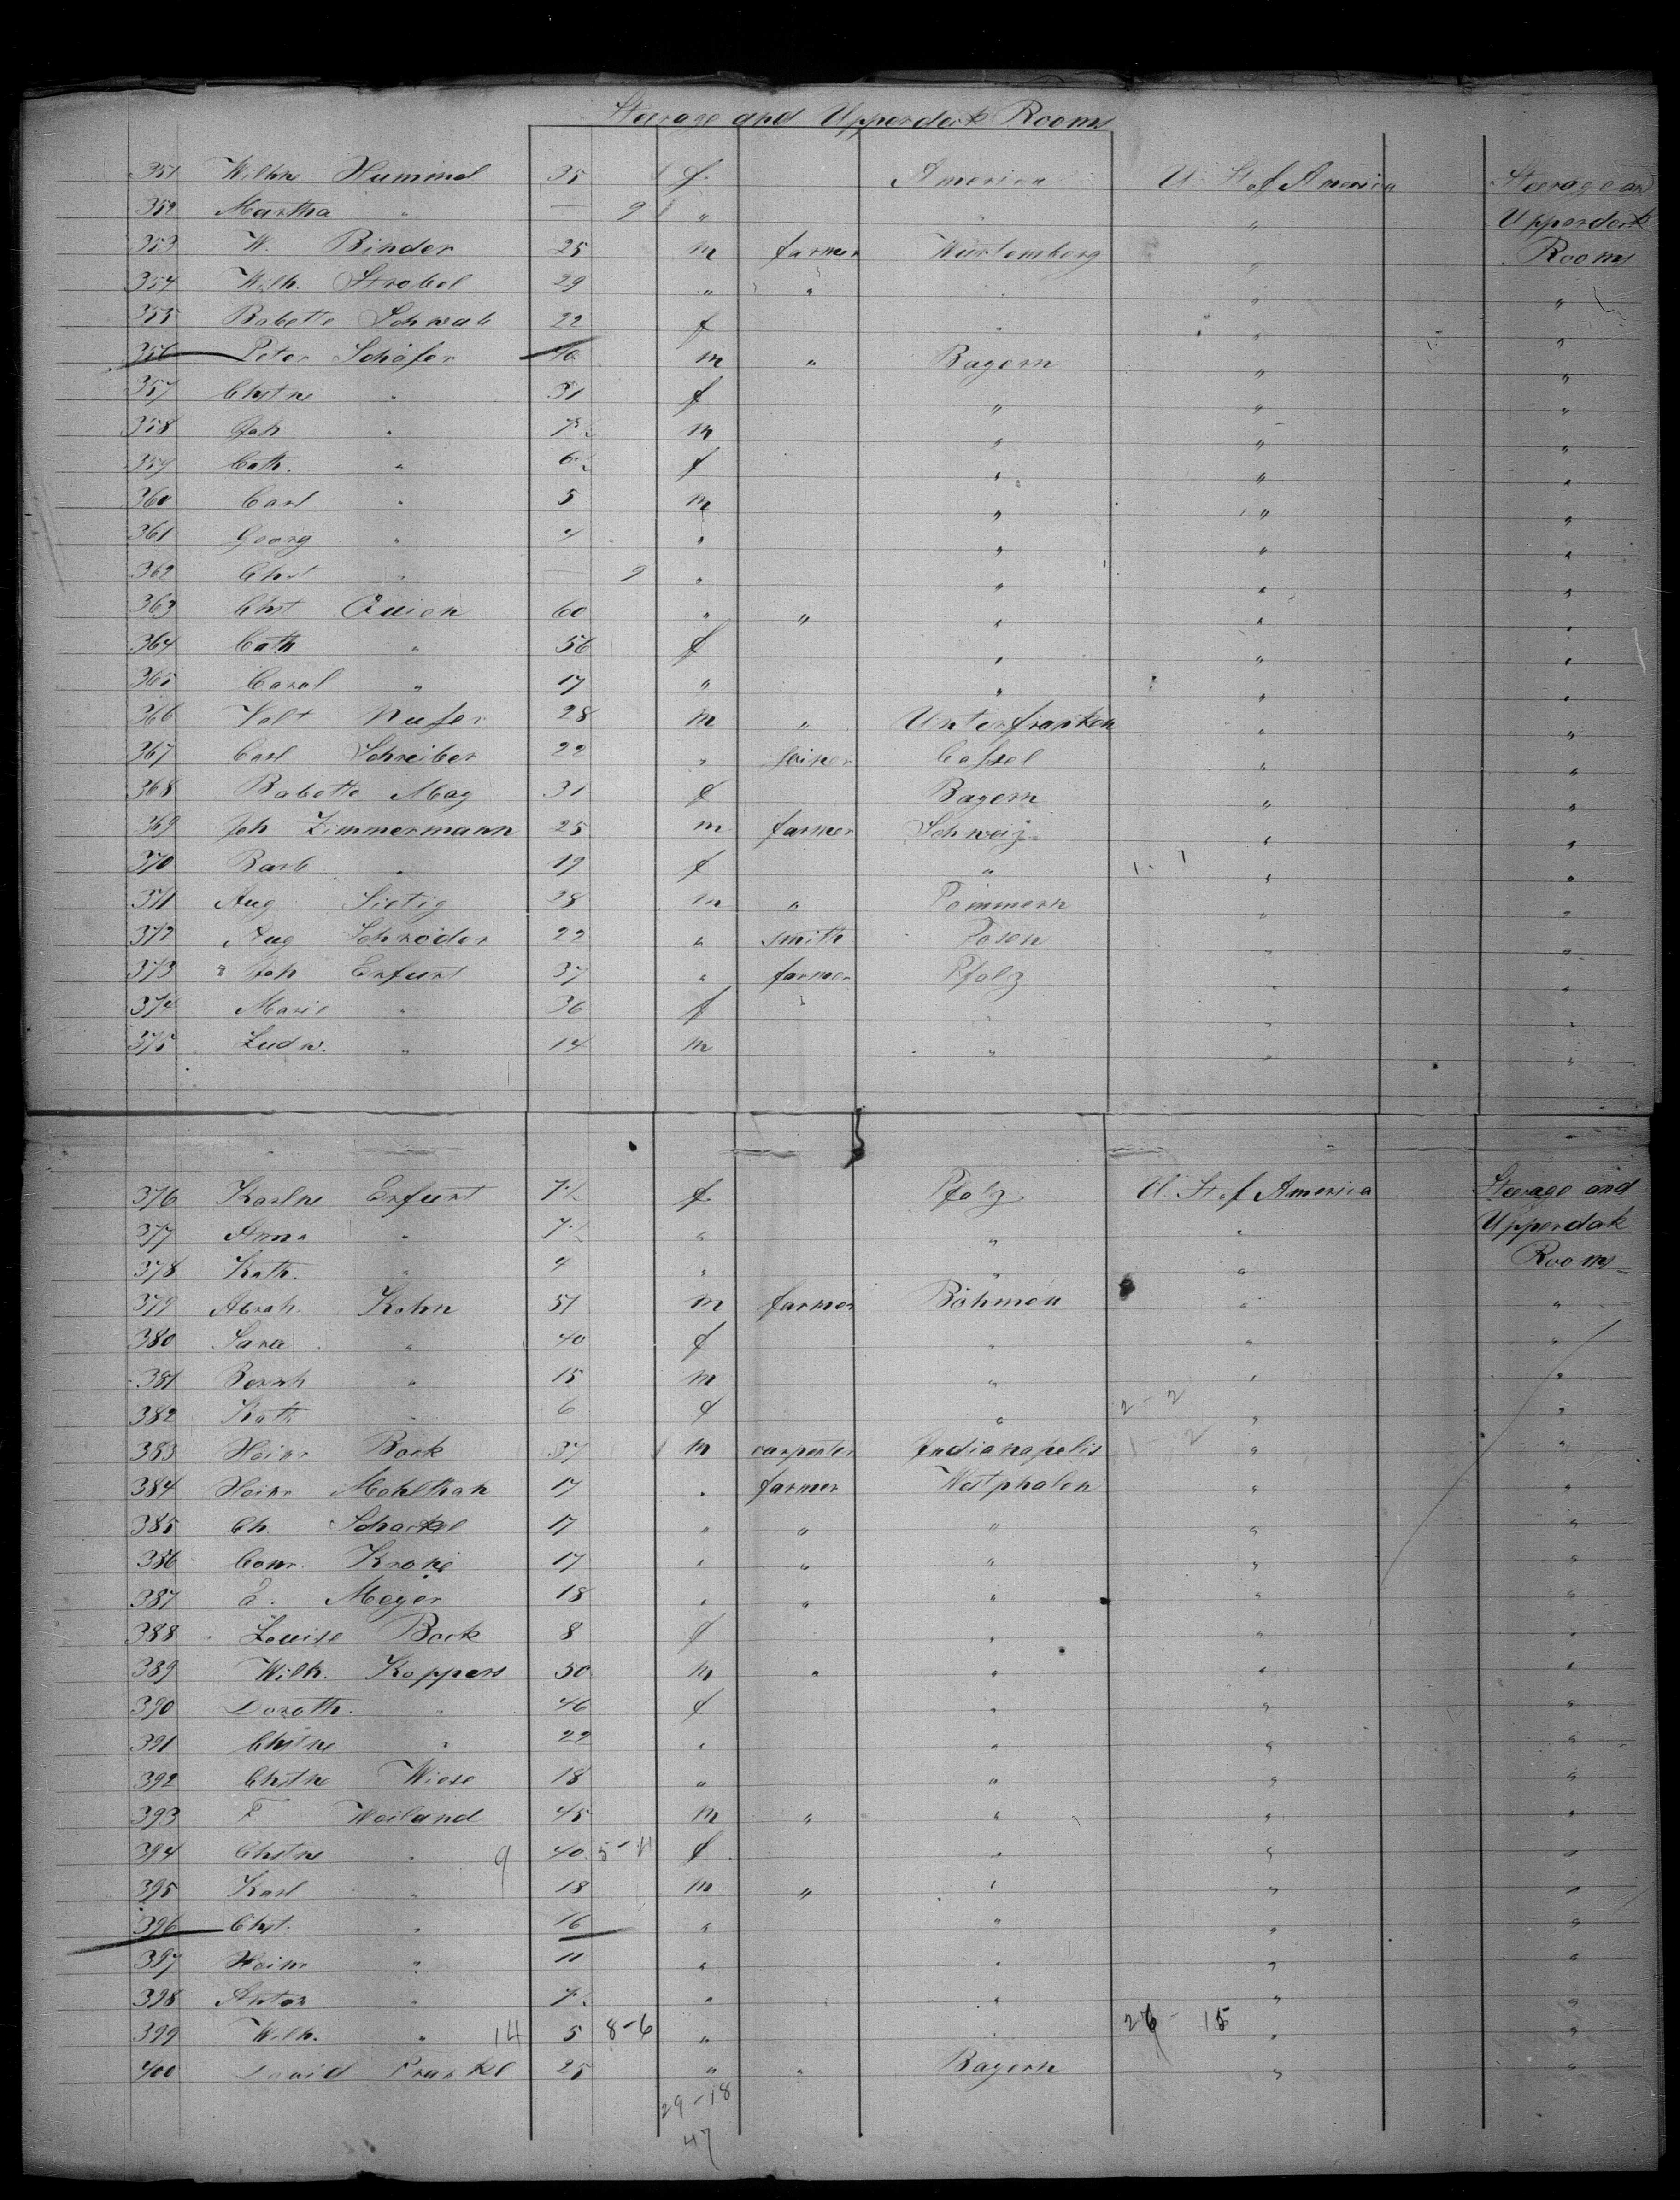 Steerage and Upperdeck Rooms
351 Wilhne Hummel 35 f. America U. St. of America Steerage and
352 Martha " — 9 " " " Upperdeck
353 W. Binder 25 m farmer Würtemberg " Rooms
354 Wilh. Strobel 29 " " " " "
355 Babette Schwab 22 f " " "
356 Peter Schäfer 40 m " Bayern " "
357 Chstne " 31 f " " "
358 Joh " 7½ m " " "
359 Cath. " 6½ f " " "
360 Carl " 5 m " " "
361 Georg " 4 " " " "
362 Chst " — 9 " " " "
363 Chst Quien 60 " " " " "
364 Cath " 56 f " " "
365 Carol " 17 " " " "
366 Valt Nufer 28 m " Unterfranken " "
367 Carl Schreiber 22 " joiner Cassel " "
368 Babette May 31 f Bayern " "
369 Joh Zimmermann 25 m farmer Schweiz " "
370 Barb " 19 f " 1 - 1 " "
371 Aug Sietig 28 m " Pommern " "
372 Aug Schröder 22 " smith Posen " "
373 Joh Erfurt 37 " farmer Pfalz " "
374 Marie " 36 f " " " "
375 Ludw. " 14 m " " "
376 Karlne Erfurt 7½ f. Pfalz. U. St. of America Steerage and
377 Anna " 7½ " " " Upperdeck
378 Kath. " 4 " " " Rooms
379 Abrah. Kohn 51 m farmer Böhmen " "
380 Sara " 40 f " " "
381 Bernh " 15 m " " "
382 Kath " 6 f " 2 - 2 " "
383 Heinr Bock 37 m carpenter Indianapolis 1 - 2 " "
384 Heinr Mehlthah 17 " farmer Westphalen " "
385 Ch. Schackel 17 " " " " "
386 Conr. Krone 17 " " " " "
387 E. Meyer 18 " " " " "
388 Louise Bock 8 f " " "
389 Wilh. Koppers 50 m " " " "
390 Doroth. " 46 f " " "
391 Chstne " 22 " " " "
392 Chstne Wiese 18 " " " "
393 F Weiland 45 m " " " "
394 Chstne " 9 40 5-4 f " " "
395 Karl " 18 m " " " "
396 Chst. " 16 " " " "
397 Heinr " 11 " " " "
398 Anton " 7½ " " " "
399 Wilh. " 14 5 8-6 " " 26 - 15 " "
400 David Frankl 25 " " Bayern " "
29-18
47